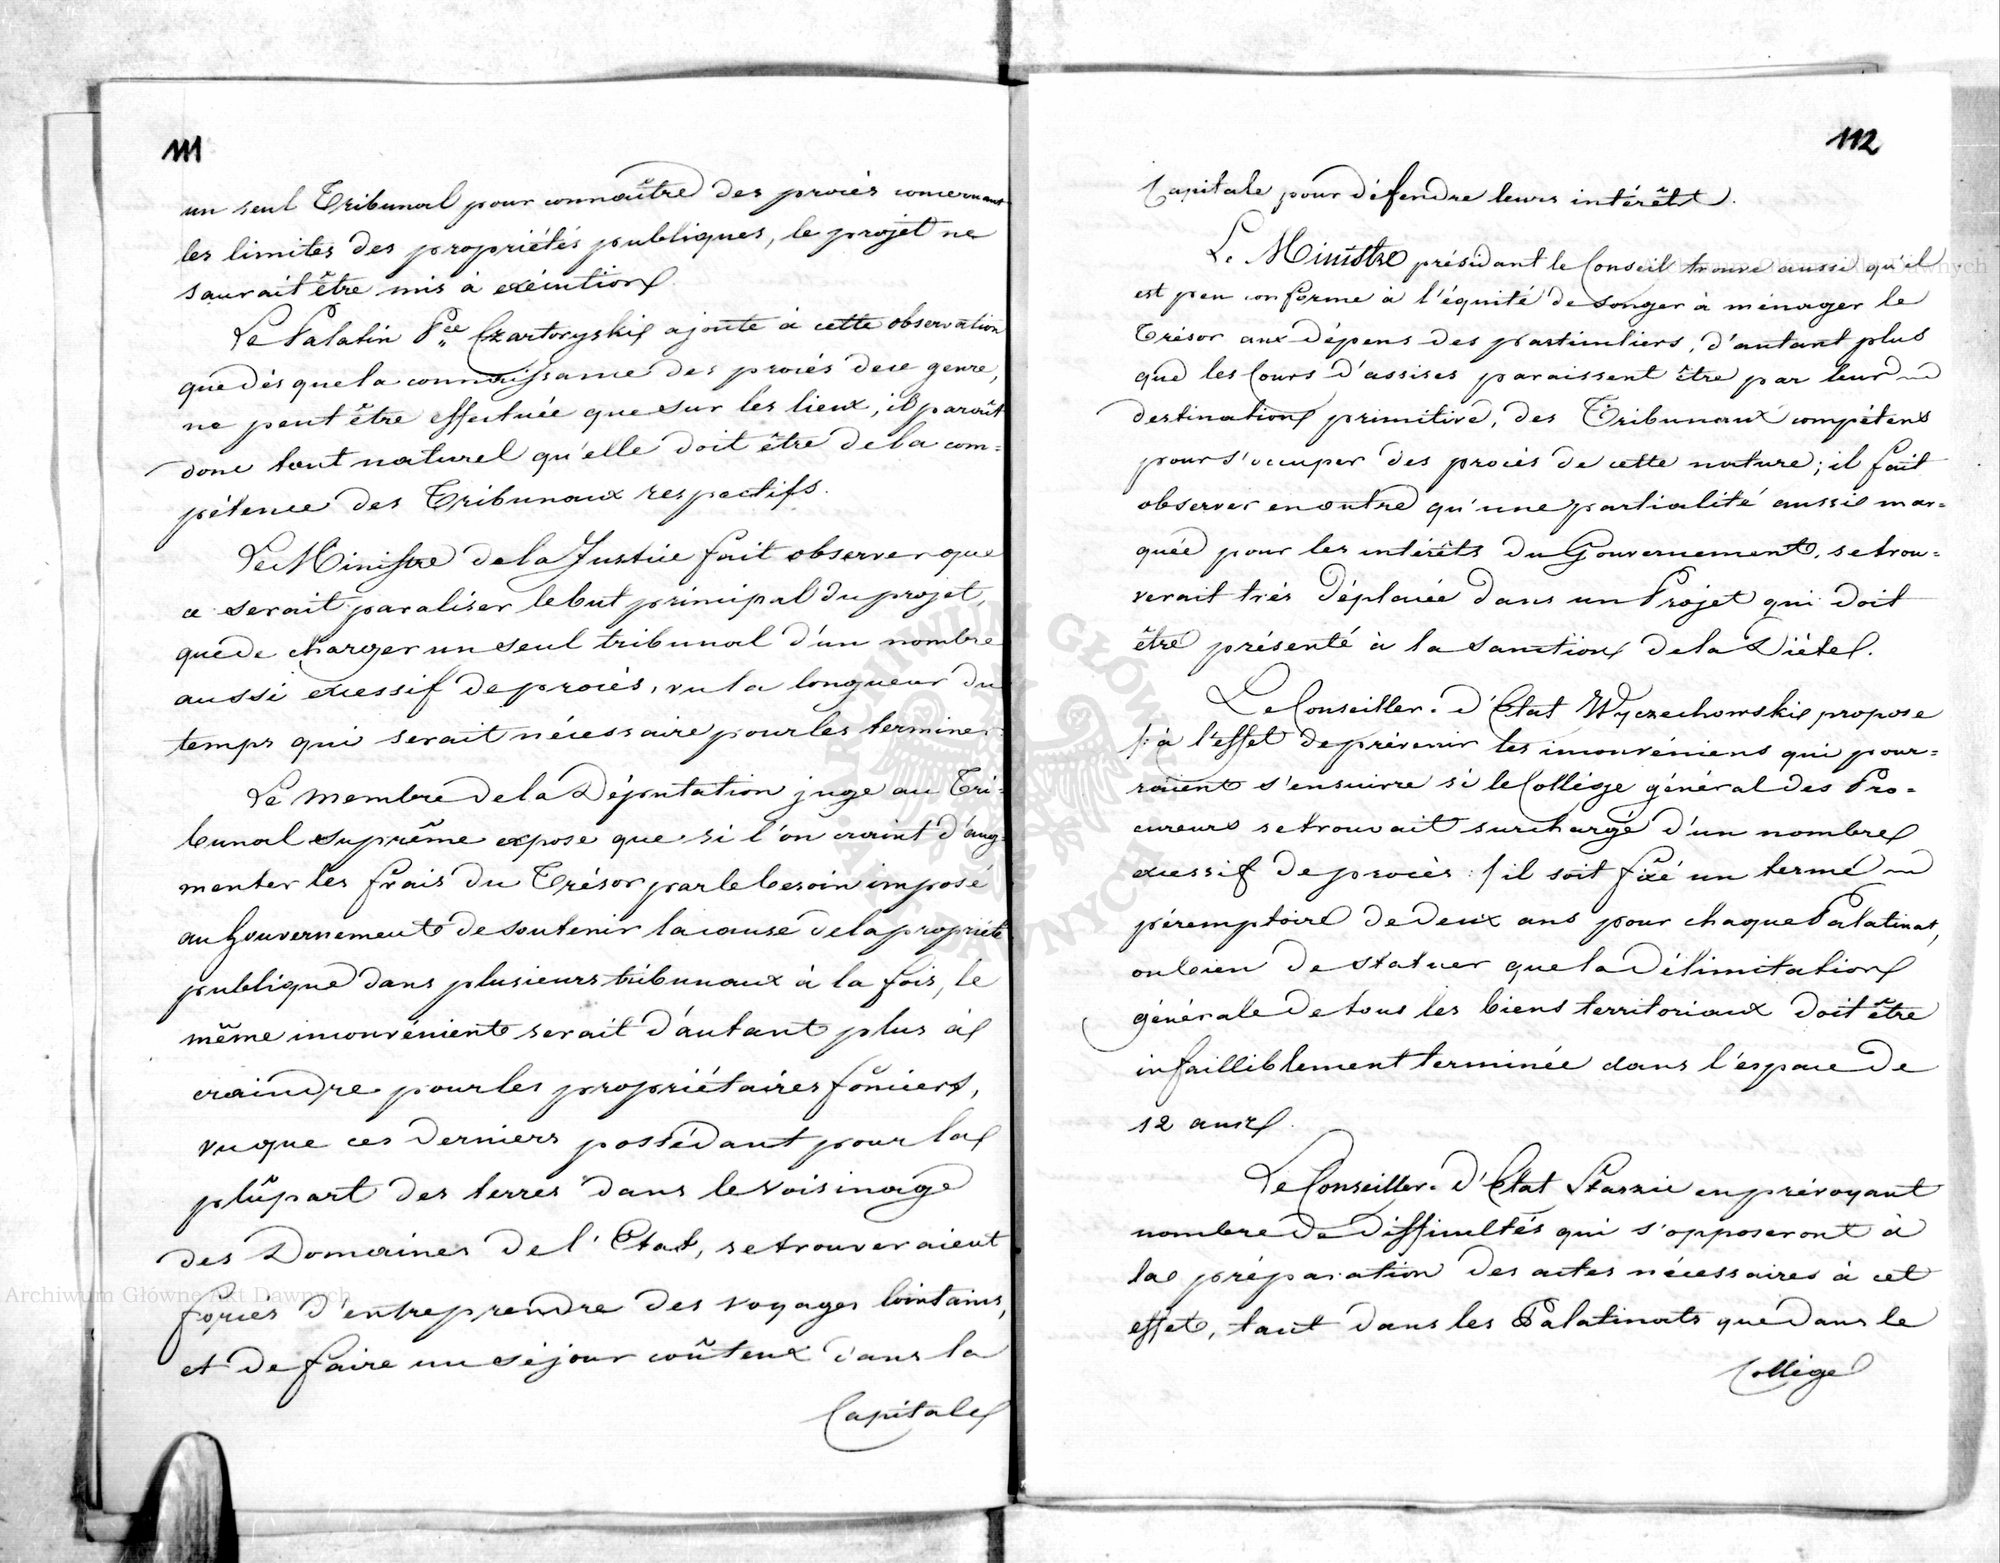 111
un seul Tribunal pour connaître des procès concernant
les limites des propriétés publiques, le projet ne
saurait être mis à exécution.
Le Palatin Pce Czartoryski ajoute à cette observation
que dès que la connaissance des procès de ce genre,
ne peut être effectuée que sur les lieux, il paroît
donc tout naturel qu'elle doit être de la com=
pétence des Tribunaux respectifs.
Le Ministre de la Justice fait observer que
ce serait paraliser le but principal du projet,
que de charger un seul tribunal d'un nombre
aussi excessif de procès, vu la longueur du
temps qui serait nécessaire pour les terminer.
Le membre de la Députation juge au Tri=
bunal suprême expose que si l'on craint d'aug=
menter les frais du Trésor par le besoin imposé
au Gouvernement de soutenir la cause de la propriété
publique dans plusieurs tribunaux à la fois, le
même inconvénient serait d'autant plus à
craindre pour les propriétaires fonciers,
vu que ces derniers possédant pour la
plûpart des terres dans le voisinage
des Domaines de l'Etat, se trouveraient
forcés d'entreprendre des voyages lointains,
et de faire un séjour coûteux dans la
Capitale
112
Capitale pour défendre leurs intérêts.
Le Ministre présidant le Conseil trouve aussi qu'il
est peu conforme à l'équité de songer à ménager le
Trésor aux dépens des particuliers, d'autant plus
que les Cours d'assises paraissent être par leur
destination primitive, des Tribunaux compétens
pour s'occuper des procès de cette nature; il fait
observer en outre qu'une partialité aussi mar=
quée pour les intérêts du Gouvernement, se trou=
verait très déplacée dans un Projet qui doit
être présenté à la sanction de la Diète.
Le Conseiller d'Etat Wyczechowski propose
/: à l'effet de prévenir les inconvéniens qui pour=
raient s'ensuivre si le Collége général des Pro=
cureurs se trouvait surchargé d'un nombre
excessif de procès :/ il soit fixé un terme
péremptoire de deux ans pour chaque Palatinat,
ou bien de statuer que la délimitation
générale de tous les biens territoriaux doit être
infailliblement terminée dans l'espace de
12 ans.
Le Conseiller d'Etat Staszic en prévoyant
nombre de difficultés qui s'opposeront à
la préparation des actes nécessaires à cet
effet, tant dans les Palatinats que dans le
Collège
Archiwum Główne Akt Dawnych
Archiwum Główne Akt Dawnych
ARCHIWUM GŁÓWNE AKT DAWNYCH